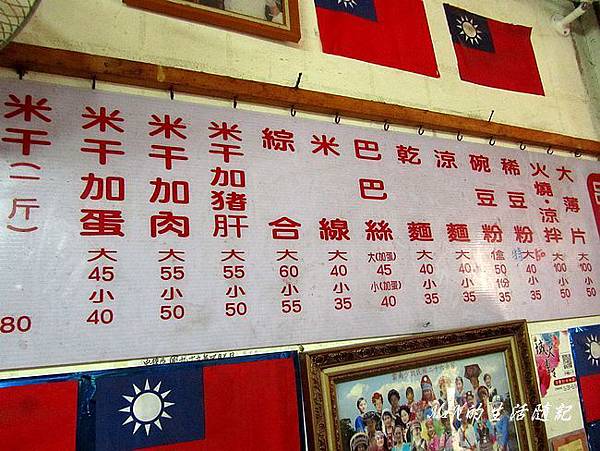 米干(一斤) 80
米干加蛋 大45 小40
米干加肉 大55 小50
米干加猪肝 大55 小50
綜合 大60 小55
米線 大40 小35
巴巴絲 大(加蛋)45 小(加蛋)40
乾麵 大40 小35
涼麵 大40 小35
碗豆粉 盒50 份35
稀豆粉 大40 小35
火燒·涼拌 大100 小50
大薄片 大100 小50
的生活隨記